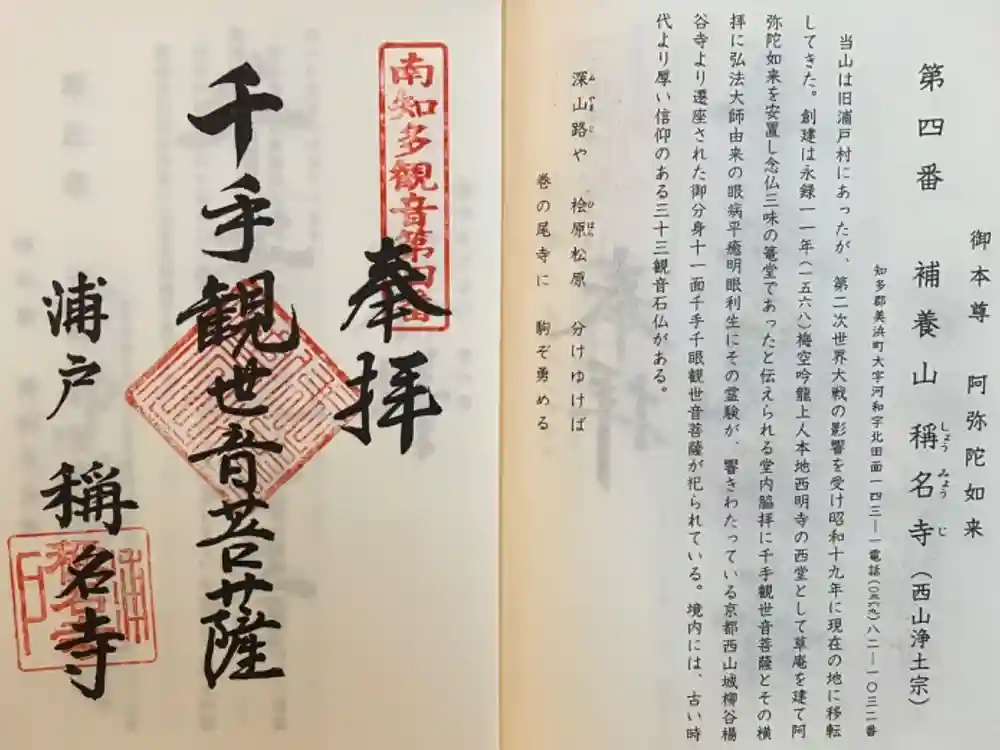 御本尊 阿弥陀如来
第四番 補養山 稱名寺（西山浄土宗）
しょう みょう じ
知多郡美浜町大字河和字北田面一四三―一電話（〇五六九）八二―一〇三二番
当山は旧浦戸村にあったが、第二次世界大戦の影響を受け昭和十九年に現在の地に移転
してきた。創建は永録一一年（一五六八）梅空吟龍上人本地西明寺の西堂として草庵を建て阿
弥陀如来を安置し念仏三昧の篭堂であったと伝えられる堂内脇拝に千手観世音菩薩とその横
拝に弘法大師由来の眼病平癒明眼利生にその霊験が、響きわたっている京都西山城柳谷楊
谷寺より遷座された御分身十一面千手千眼観世音菩薩が祀られている。境内には、古い時
代より厚い信仰のある三十三観音石仏がある。
深山路や 桧原松原 分けゆけば
みやまじ ひばら
巻の尾寺に 駒ぞ勇める
南知多観音第四番
奉拝
千手観世音菩薩
浦戸 稱名寺